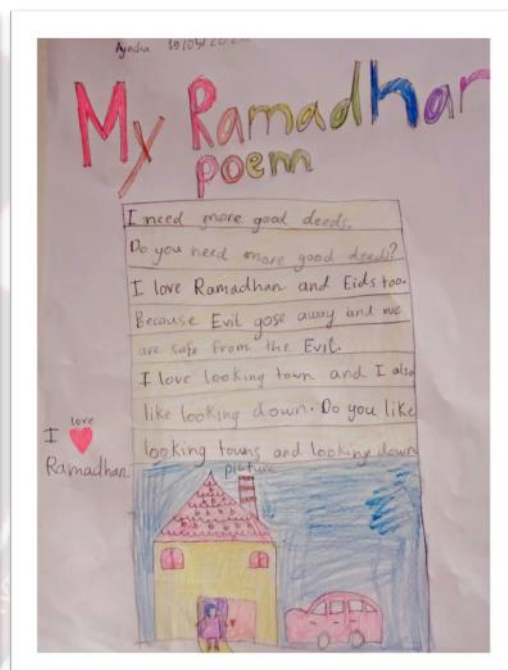 My Ramadhan
poem
I need more good deeds.
Do you need more good deeds?
I love Ramadhan and Eids too.
Because Evil gose away and we
are safe from the Evil.
I love looking town and I also
like looking down. Do you like
looking towns and looking down
picture
love
I
Ramadhan